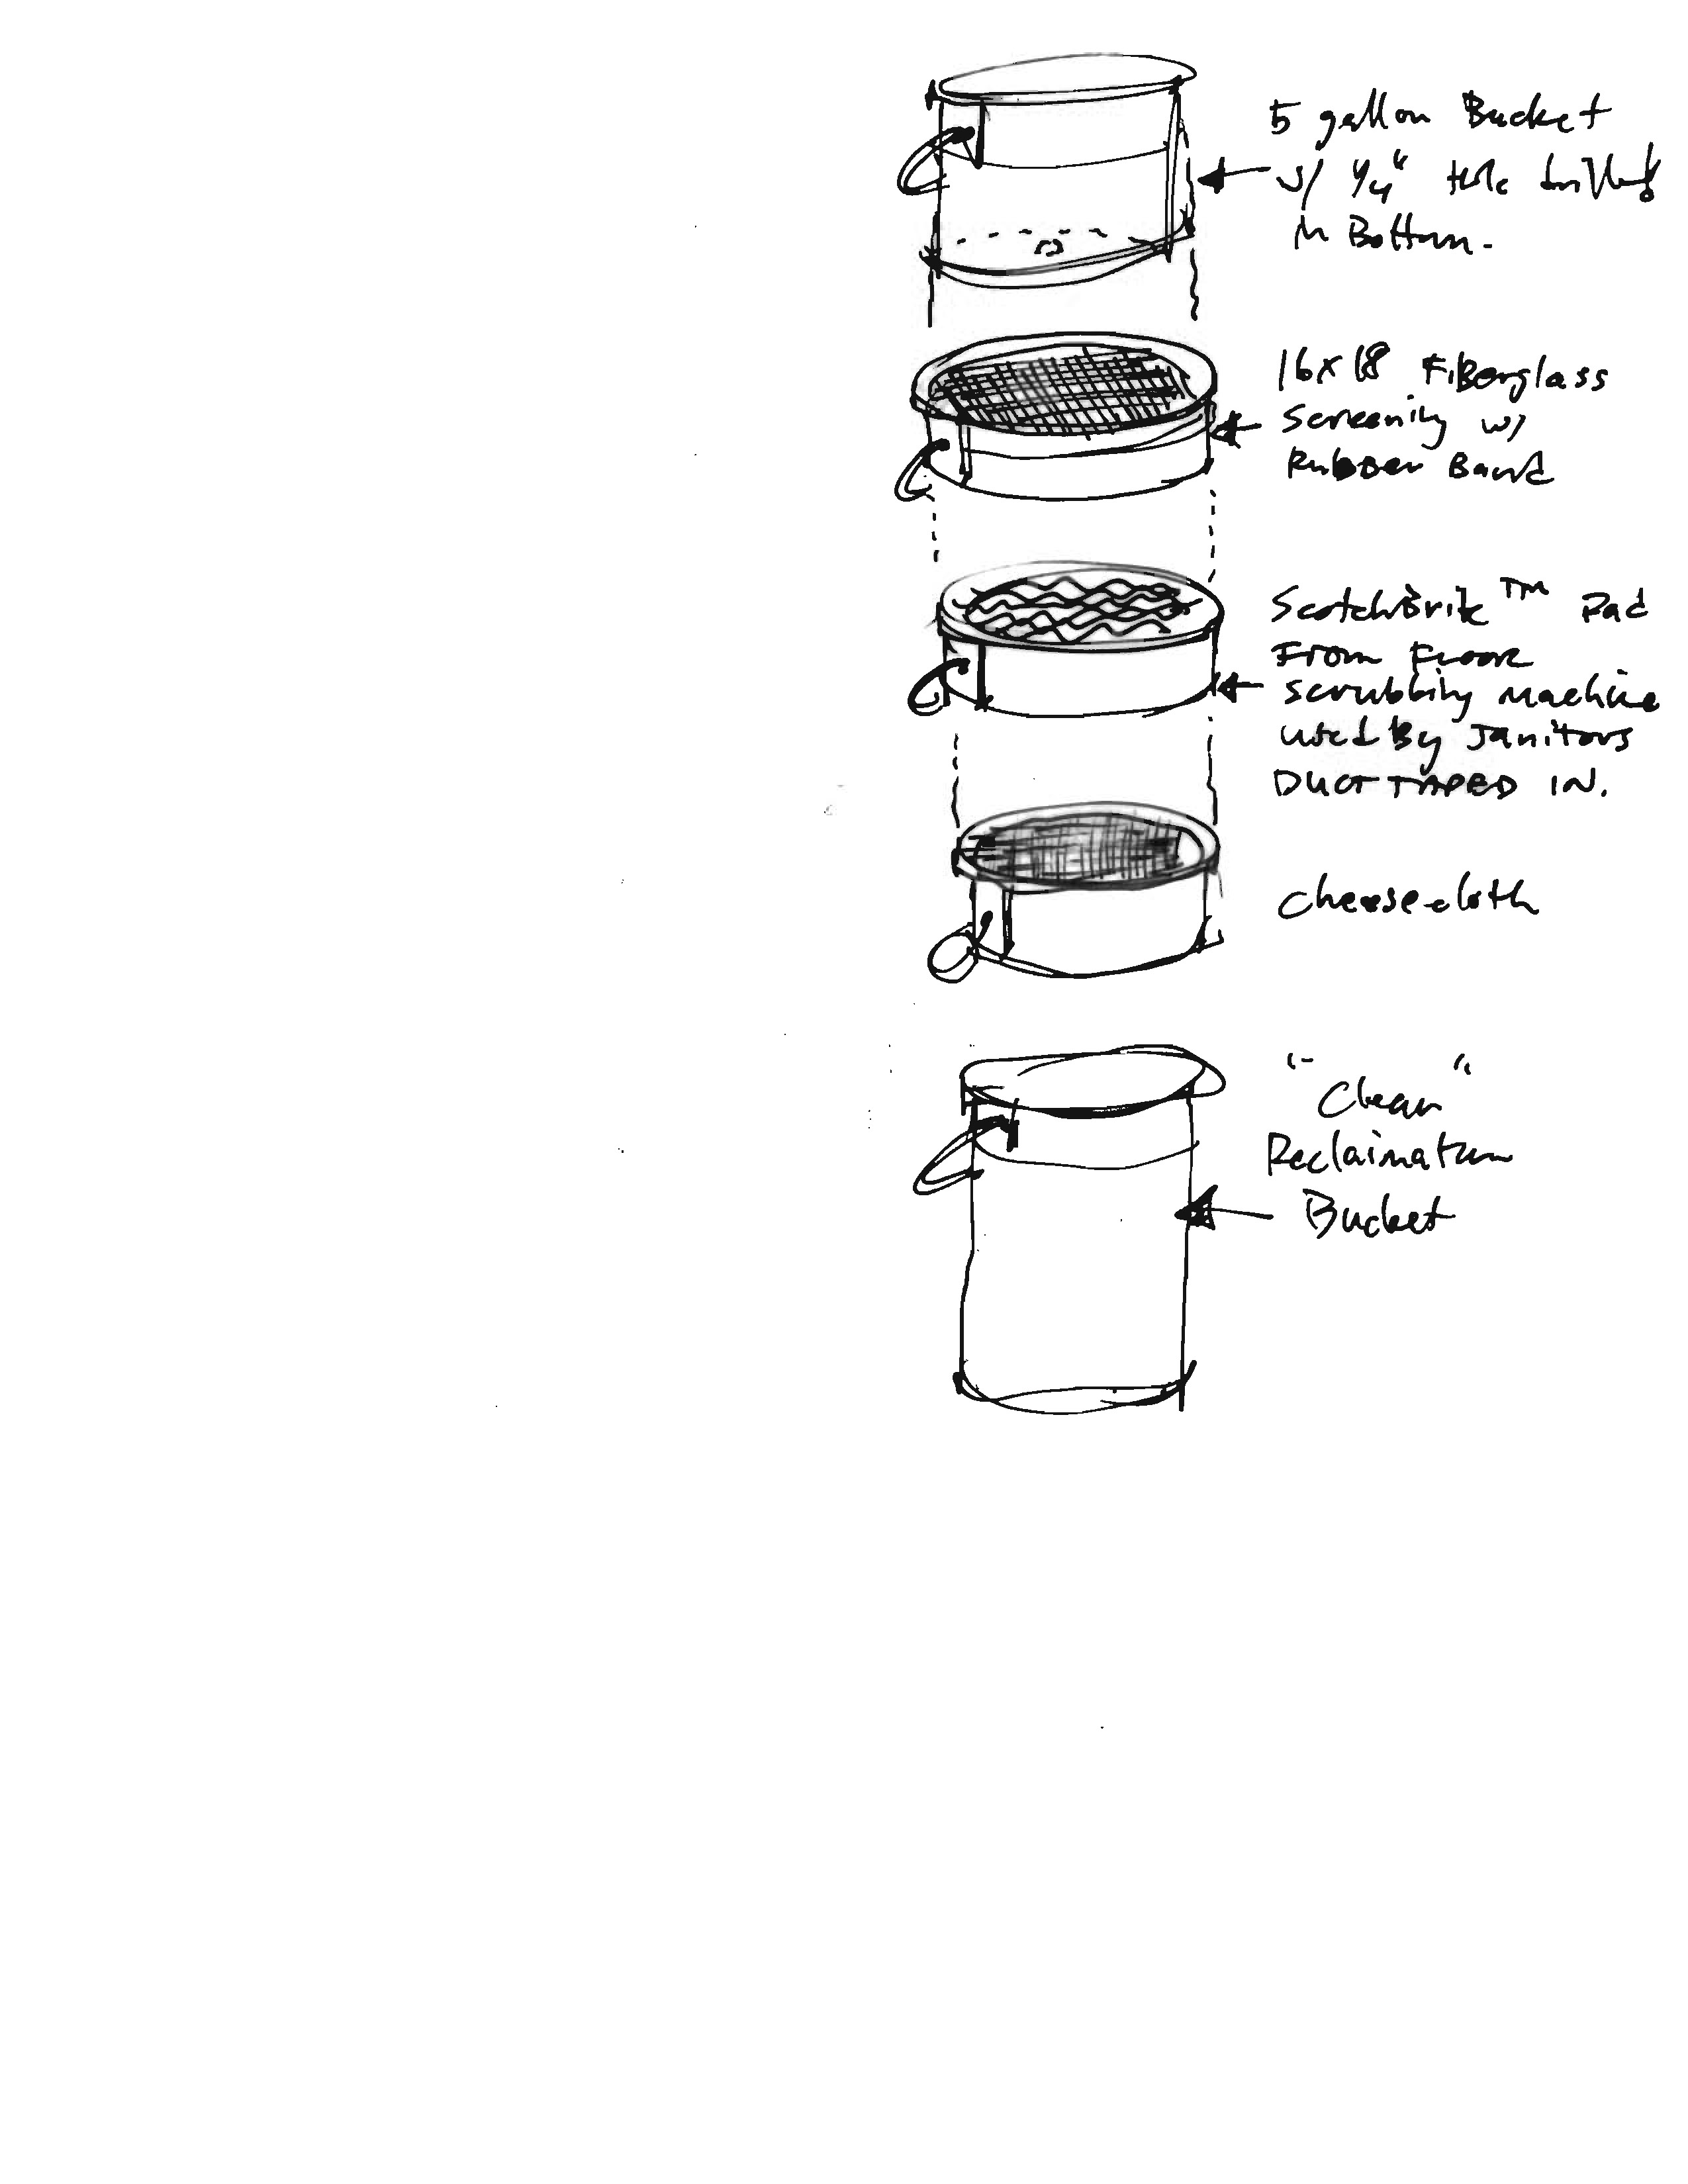 5 gallon Bucket
w/ 1/4" Hole drilled
in Bottom.
16x18 Fiberglass
Screening w/
Rubber Band
ScotchBrite™ Pad
From Floor
scrubbing machine
used By Janitors
DUCT TAPED IN.
cheese-cloth
"Clean"
Reclaimation
Bucket